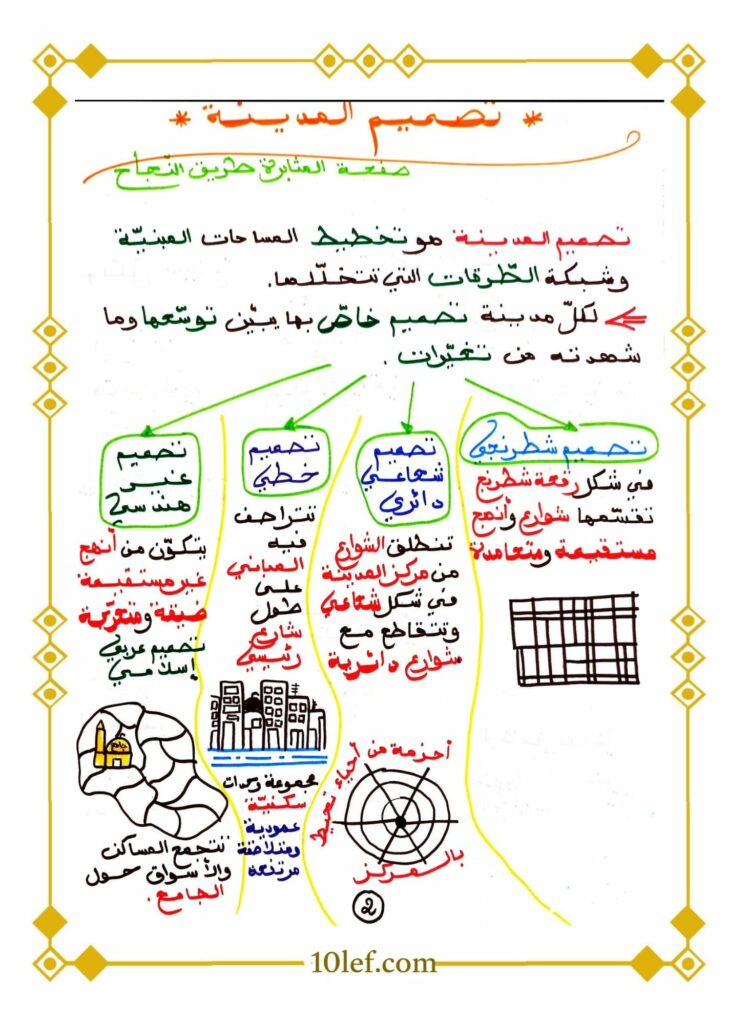 * تصميم المدينة *
صفحة المثابرة طريق النّجاح
تصميم المدينة هو تخطيط المساحات المبنيّة
وشبكة الطّرقات التي تتخلّلها.
لكلّ مدينة تصميم خاصّ بها يبيّن توسّعها وما
شهدته من تغيّرات.
تصميم شطرنجي
في شكل رقعة شطرنج
تقسّمها شوارع وأنهج
مستقيمة ومتعامدة
تصميم
شعاعي
دائري
تنطلق الشوارع
من مركز المدينة
في شكل شعاعي
وتتقاطع مع
شوارع دائرية
أحزمة من أحياء تحيط
بالمركز
تصميم
خطي
تتراصف
فيه
المباني
على
طول
شارع
رئيسي
مجموعة وحدات
سكنيّة
عمودية
ومتلاصقة
مرتفعة
تصميم
غير
هندسي
يتكوّن من أنهج
غير مستقيمة
ضيقة ومتعرّجة
تصميم عربي
إسلامي
جامع
تتجمع المساكن
والأسواق حول
الجامع.
2
10lef.com